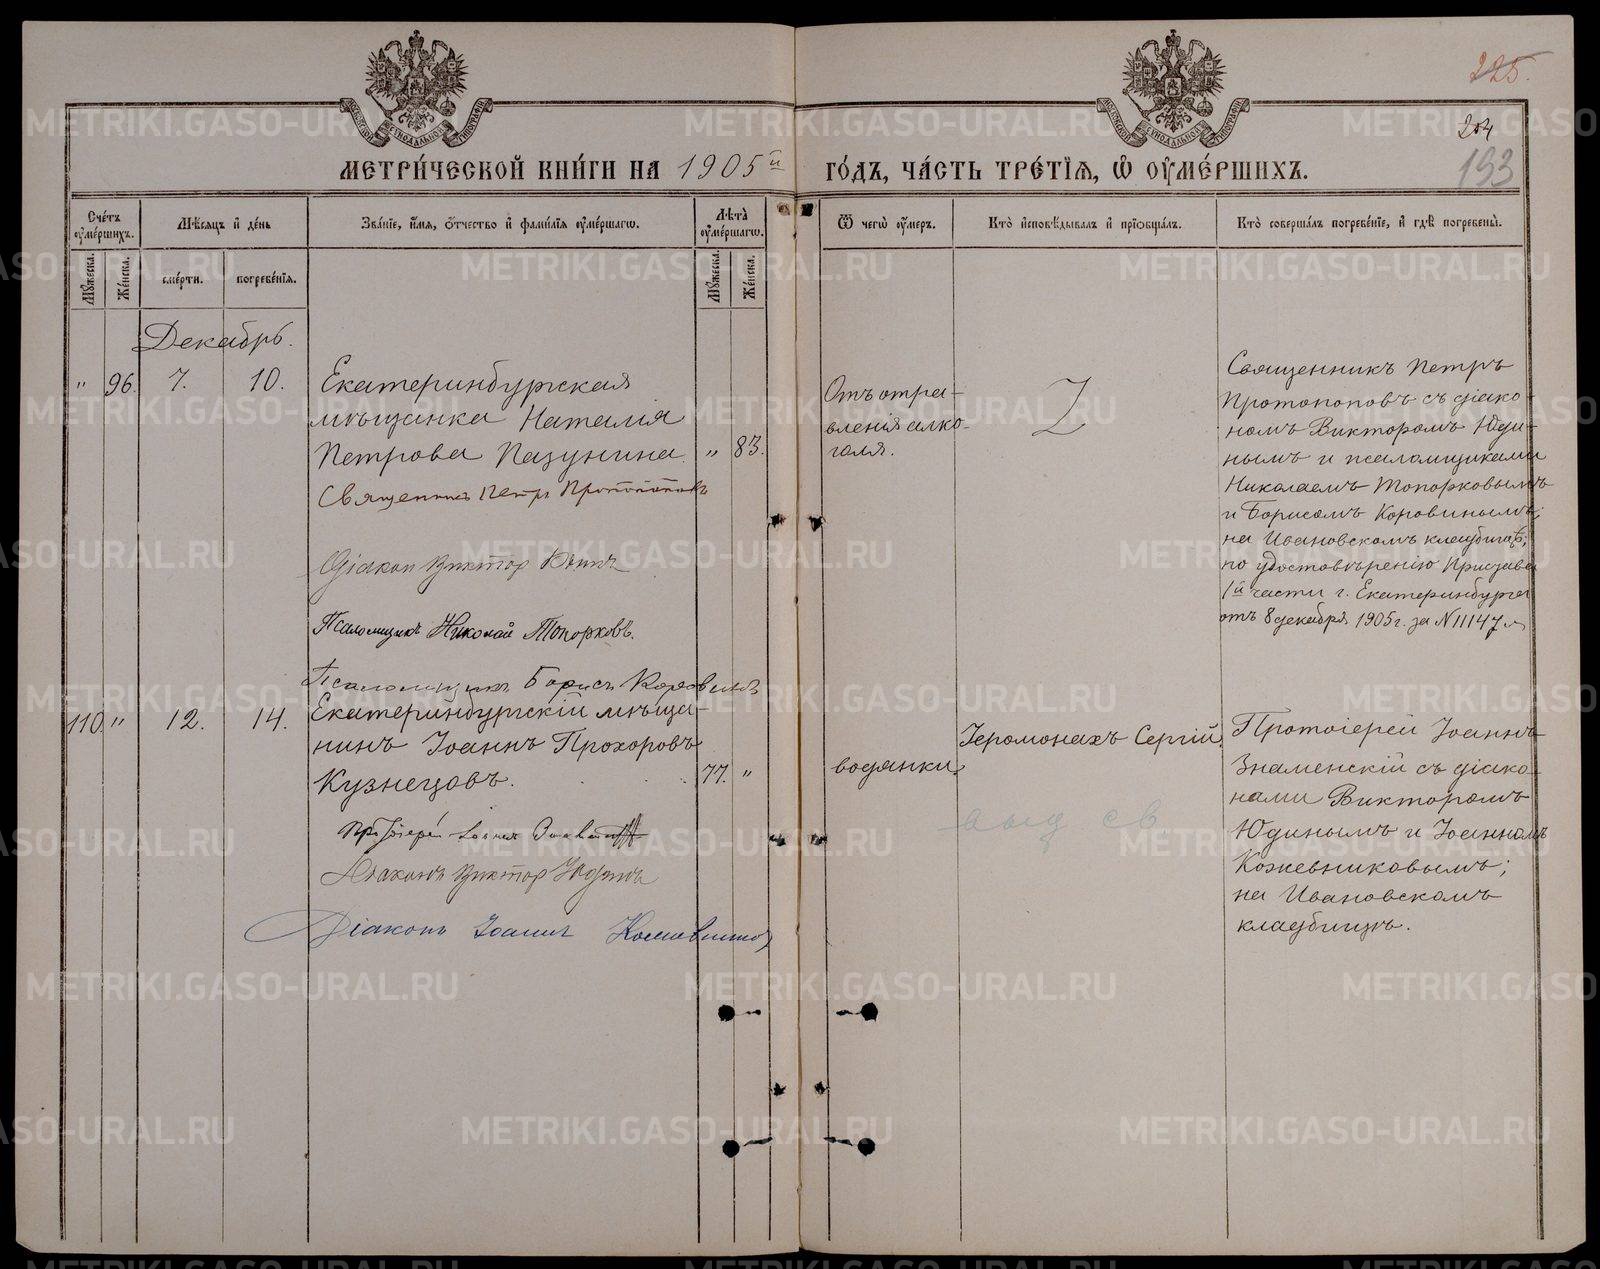 225.
204
193
МЕТРИ́ЧЕСКОЙ КНИ́ГИ НА 1905й ГО́ДЪ, ЧА́СТЬ ТРЕ́ТІѦ, Ѽ ОУМЕ́РШИХЪ.
Сче́тъ оуме́ршихъ.
Мѣ́сяцъ и де́нь
Зва́ніе, и́мя, о́тчество и фами́лія оуме́ршагѡ.
Лѣ́та оуме́ршагѡ.
Ѿ чегѡ̀ оу́меръ.
Кто̀ исповѣ́дывалъ и пріобща́лъ.
Кто̀ соверша́лъ погребе́ніе, и гдѣ̀ погребены̀.
Му́жеска.
Же́нска.
сме́рти.
погребе́нія.
Му́жеска.
Же́нска.
Декабрь.
" 96. 7. 10.
Екатеринбургская
мѣщанка Наталія
Петрова Пазунина. " 83.
Священникъ Петръ Протопоповъ
Діаконъ Викторъ Юдинъ
Псаломщикъ Николай Топорковъ.
Псаломщикъ Борисъ Коровинъ
Отъ отра-
вленія алко-
голя.
Священникъ Петръ
Протопоповъ съ діако-
номъ Викторомъ Юди-
нымъ и псаломщиками
Николаемъ Топорковымъ
и Борисомъ Коровинымъ;
на Ивановскомъ кладбищѣ;
по удостовѣренію Пристава
1й части г. Екатеринбурга
отъ 8 декабря 1905 г. за № 11147
110. " 12. 14.
Екатеринбургскій мѣща-
нинъ Іоаннъ Прохоровъ
Кузнецовъ. 77. "
Протоіерей Іоаннъ Знаменскій
Діаконъ Викторъ Юдинъ
Діаконъ Іоаннъ Кожевниковъ
водянки.
Іеромонахъ Сергій.
выд св
Протоіерей Іоаннъ
Знаменскій съ діако-
нами Викторомъ
Юдинымъ и Іоанномъ
Кожевниковымъ;
на Ивановскомъ
кладбищѣ.
METRIKI.GASO-URAL.RU